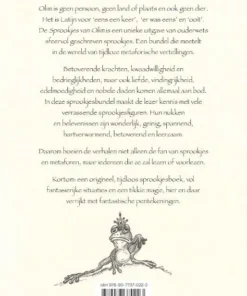 Olim is geen persoon, geen land of plaats en ook geen dier.
Het is Latijn voor 'eens een keer', 'er was eens' en 'ooit'.
De Sprookjes van Olim is een unieke uitgave van ouderwets
sfeervol geschreven sprookjes. Een bundel die meetelt
in de wereld van tijdloze metaforische vertellingen.
Betoverende krachten, kwaadwilligheid en
bedrieglijkheden, maar ook liefde, vindingrijkheid,
edelmoedigheid en nobele daden komen allemaal aan bod. In
deze sprookjesbundel maakt de lezer kennis met vele
verrassende sprookjesfiguren. Hun nukken
en belevenissen zijn wonderlijk, geinig, spannend,
hartverwarmend, betoverend en leerzaam.
Daarom boeien de verhalen niet alleen de fan van sprookjes
en metaforen, maar iedereen die ze zal lezen of voorlezen.
Kortom: een origineel, tijdloos sprookjesboek, vol
fantasierijke situaties en een tikkie magie, hier en daar
verrijkt met fantastische pentekeningen.